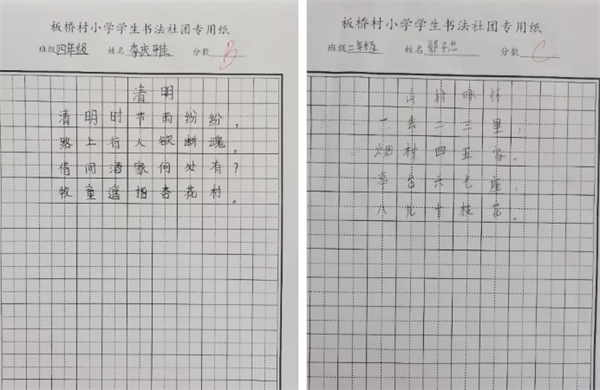 板桥村小学学生书法社团专用纸
班级 四年级 姓名 李庆 分数 B
清明
清明时节雨纷纷，
路上行人欲断魂。
借问酒家何处有？
牧童遥指杏花村。
板桥村小学学生书法社团专用纸
班级 二年级 姓名 郭子 分数 C
山村咏怀
一去二三里，
烟村四五家。
亭台六七座，
八九十枝花。